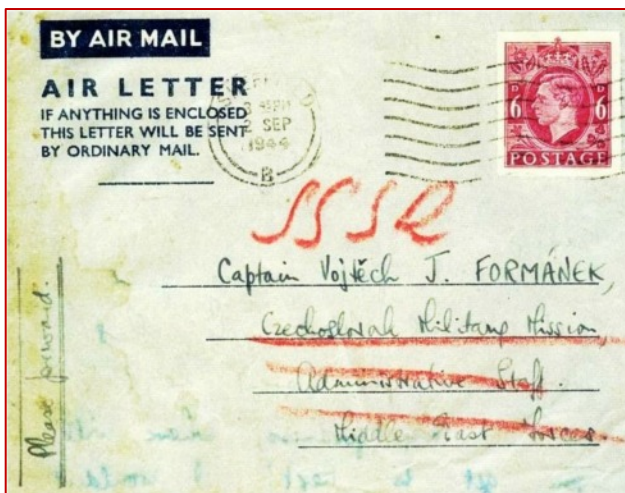 BY AIR MAIL
AIR LETTER
IF ANYTHING IS ENCLOSED
THIS LETTER WILL BE SENT
BY ORDINARY MAIL.
SEP
1944
B
D D
6 6
POSTAGE
SSSR
Captain Vojtěch J. FORMÁNEK,
Czechoslovak Military Mission,
Administrative Staff.
Middle East Forces
Please forward.